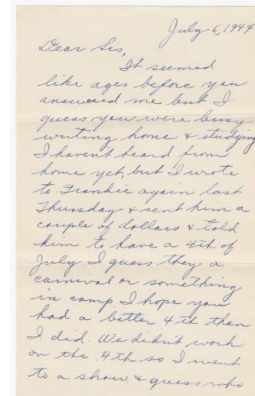 July 6, 1944
Dear Sis,
It seemed
like ages before you
answered me but I
guess you were busy
writing home & studying
I havent heard from
home yet but I wrote
to Frankie again last
Thursday & sent him a
couple of dollars & told
him to have a 4th of
July I guess they a
carnival or something
in camp I hope you
had a better 4th than
I did. We didn't work
on the 4th so I went
to a show & guess who